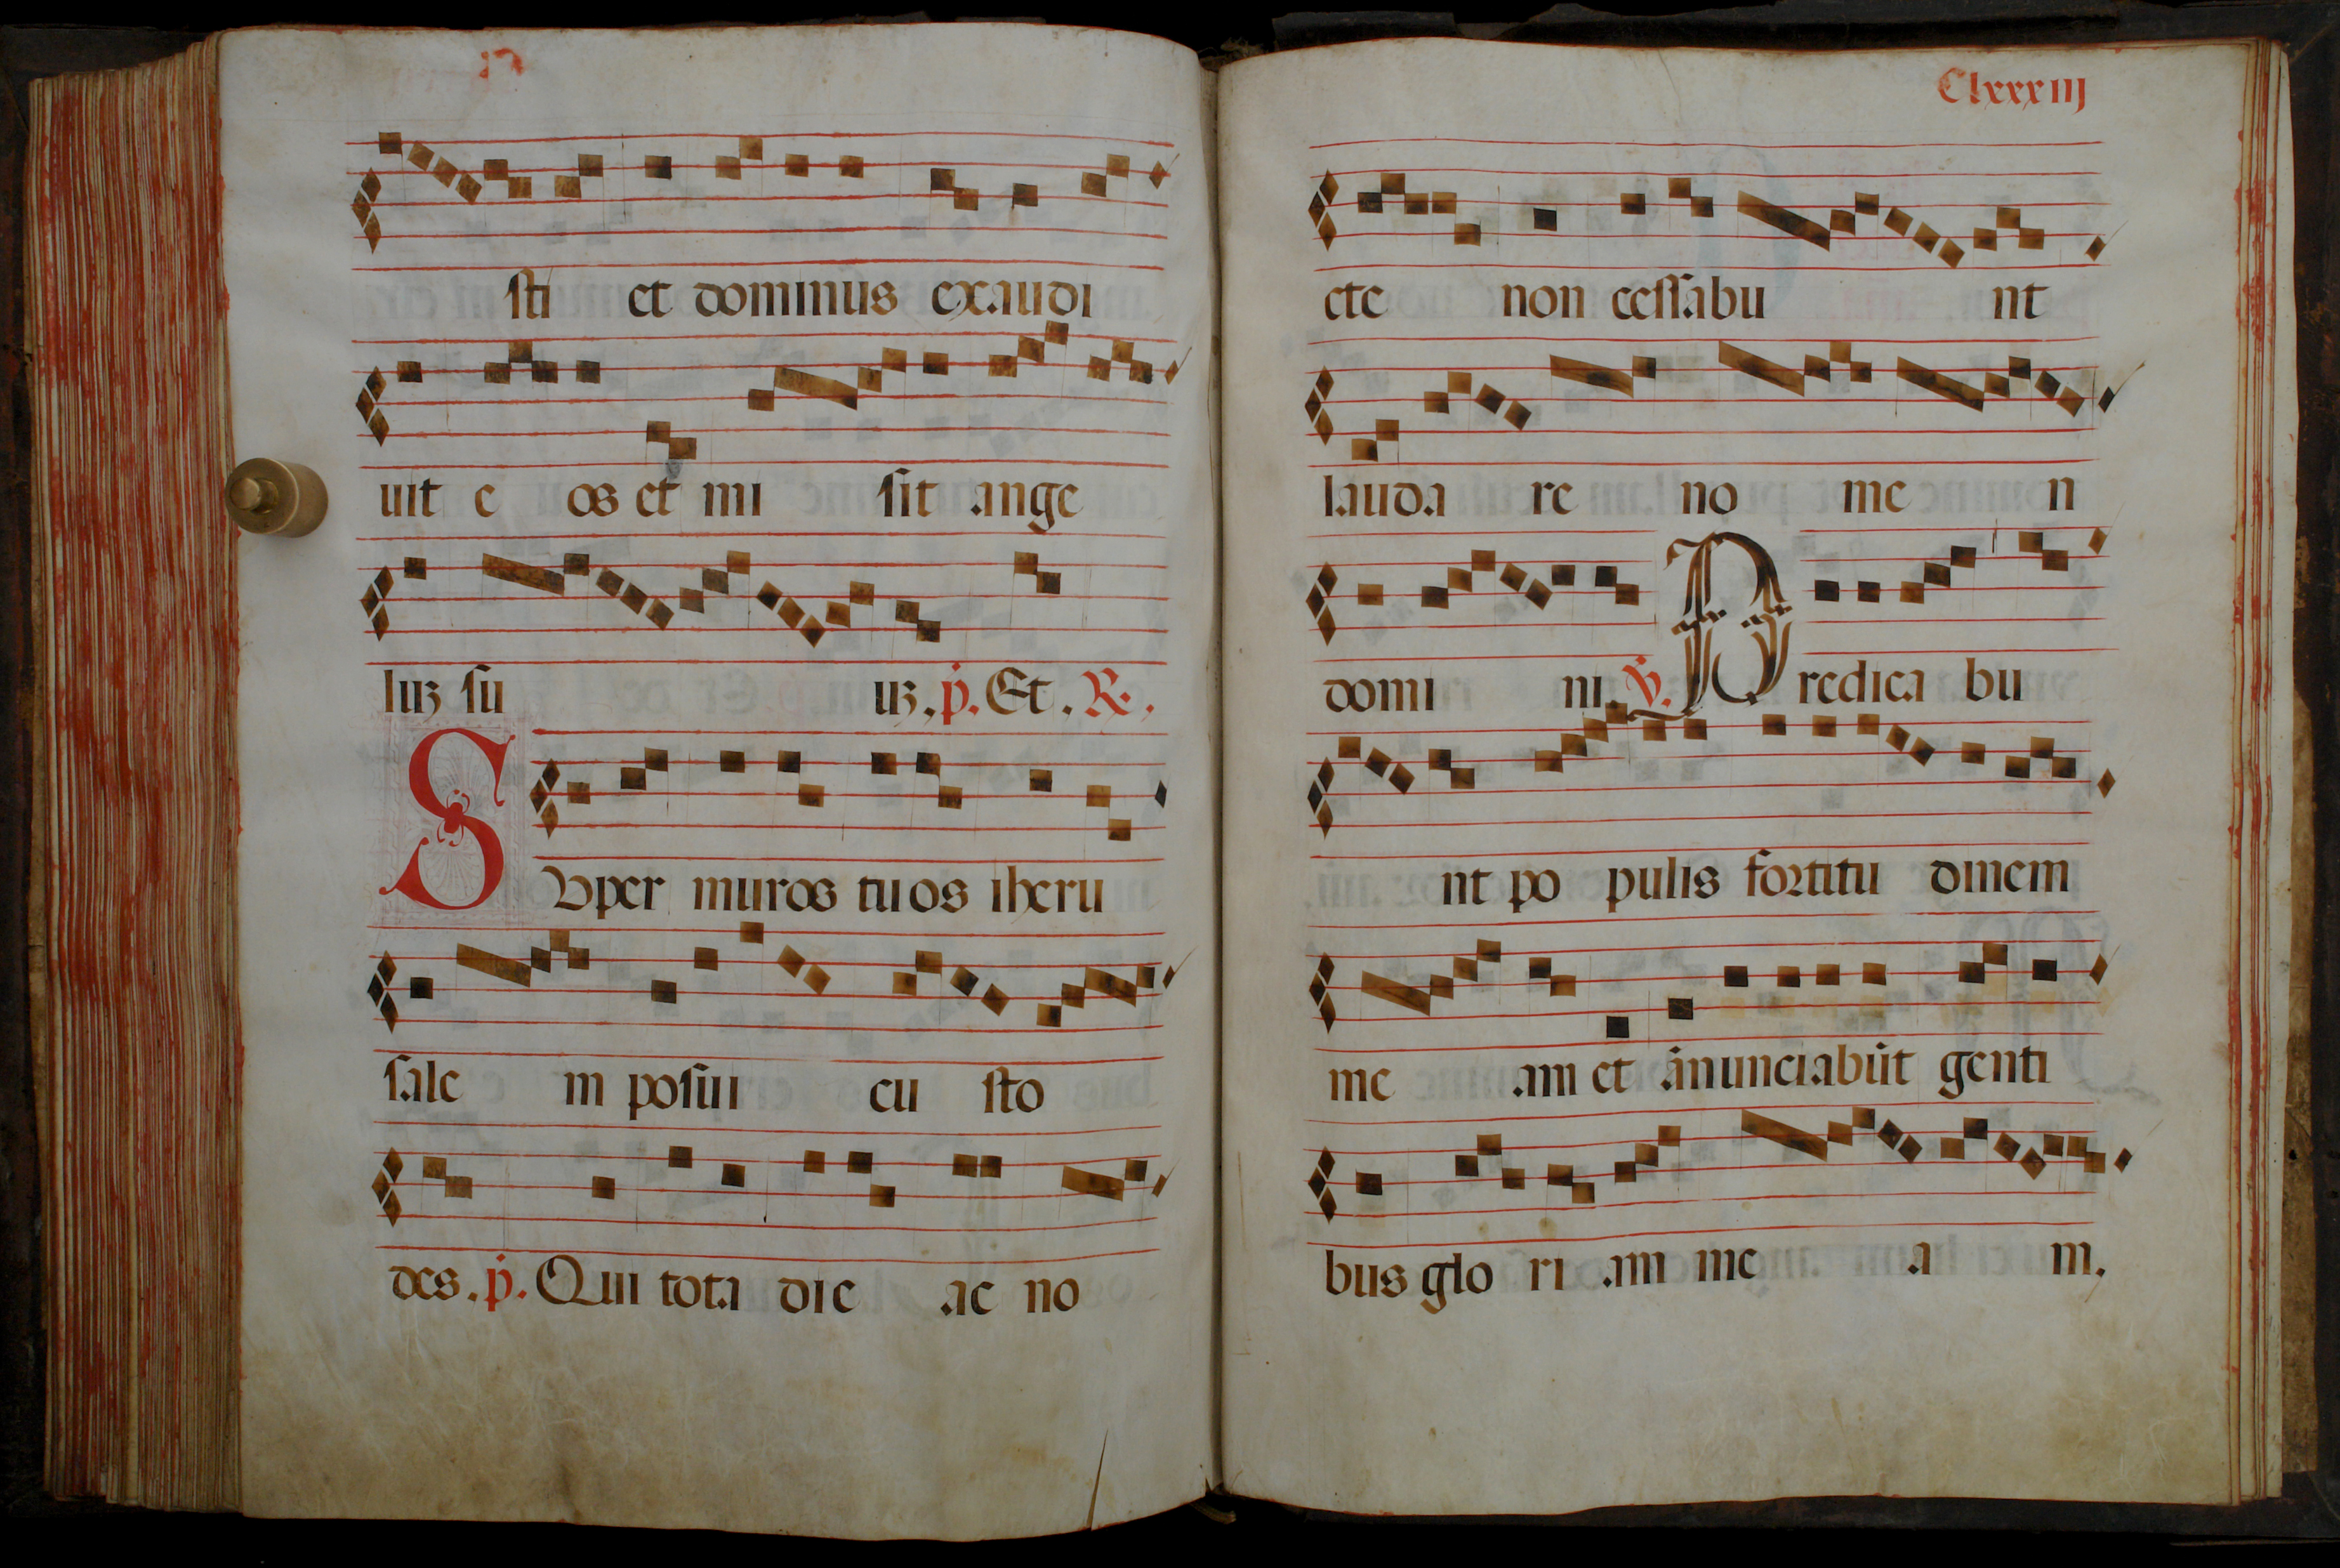 sti et dominus exaudi
uit e os et mi sit ange
luʒ su uʒ. p̄. Et. R.
SUper muros tuos iheru
sale m posui cu sto
des. p̄. Qui tota die ac no
Clxxxiij
cte non cessabu nt
lauda re no me n
domi ni. V. Predica bu
nt po pulis fortitu dinem
me am et ānunciabūt genti
bus glo ri am me a m.